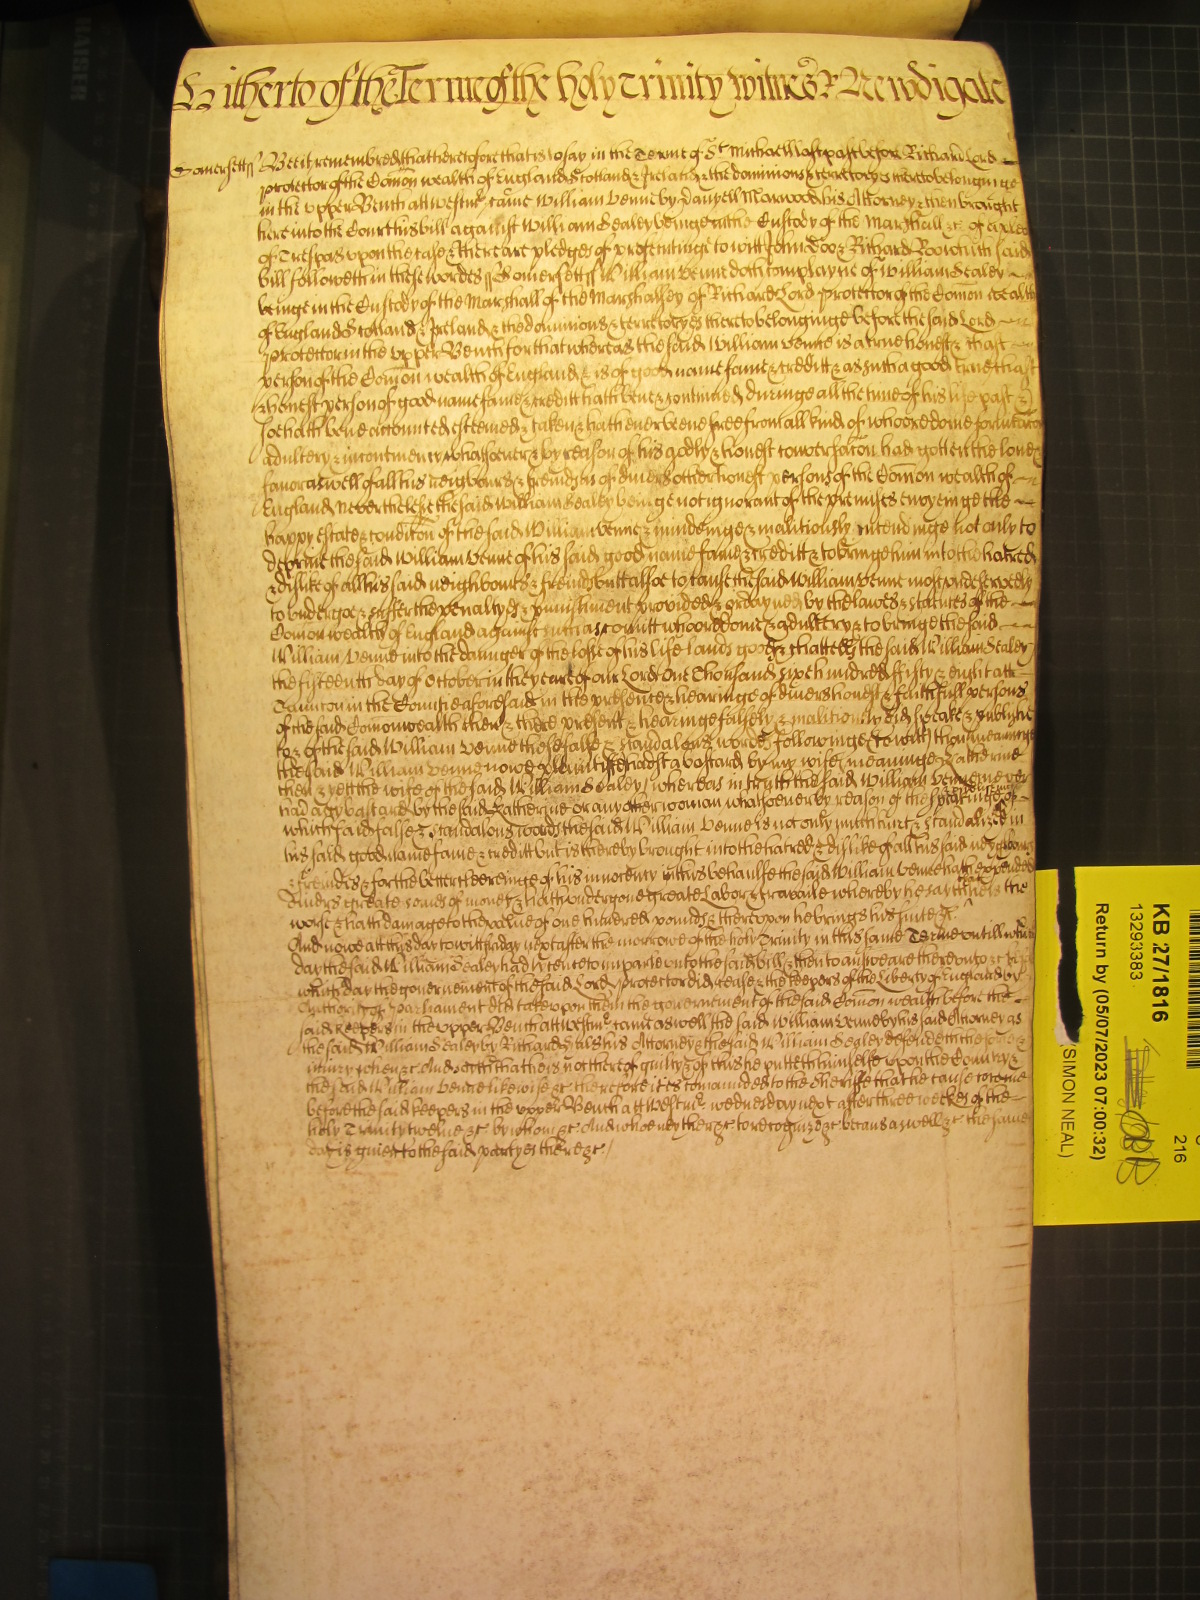 Hitherto of the Terme of the holy Trinity witnes R Newdigate
Somersett ss Be it remembred that heretofore that is to say in the Terme of St Michaell last past before Richard Lord
Protector of the Comon wealth of England Scotland & Ireland & the dominions & terretoryes thereto belonginge
in the upper Bench att Westmr came William Venne by Danyell Marwood his Attorney & then brought
here into the Court his bill against William Sealey beinge in the Custody of the Marshall &c of a plea
of Trespas upon the case & there are pledges of prosecutinge to witt John Doo & Richard Roo which said
bill followeth in these wordes ss Somersett ss William Venne doth complayne of William Sealey
beinge in the Custody of the Marshall of the Marshalsey of Richard Lord Protector of the Comon wealth
of England Scotland & Ireland & the dominions & terretoryes thereto belonginge before the said Lord
Protector in the upper Bench for that whereas the said William Venne is a true honest & chast
person of the Comon wealth of England & is of good name fame & creditt & as such a good true chast
& honest person of good name fame & creditt hath bene & continued duringe all the time of his life past &
soe hath bene accounted esteemed & taken & hath ever beene free from all kind of whooredome fornicacon
adultery & incontinency whatsoever & by reason of his godly & honest conversacon had gotten the love &
favor aswell of all his neighbours & freindes as of divers other honest persons of the Comon wealth of
England Neverthelesse the said William Sealey beinge not ignorant of the premises envyeinge the
happy estate & condicon of the said William Venne & mindeinge & malitiously intendinge not only to
deprive the said William Venne of his said good name fame & creditt & to bringe him into the hatred
& dislike of all his said neighbours & freinds butt alsoe to cause the said William Venne most undeservedly
to undergoe & suffer the penaltyes & punishment provided & ordayned by the lawes & statutes of the
Comon wealth of England against such as comitt whooredome & adultery & to bringe the said
William Venne into the daunger of the losse of his life lands goods & chattells the said William Sealey
the fifteenth day of October in the yeare of our Lord One Thousand sixe hundred fifty & eight att
Taunton in the Countie aforesaid in the presence & hearinge of divers honest & faithfull persons
of the said Comonwealth then & there present & hearinge falsely & malitiously did speake & publishe
to & of the said William Venne these false & scandalous wordes followinge (to witt) thou (meaninge
the said William Venne nowe plaintiffe) hadst a bastard by my wife (meaninge Katherine
then & yett the wife of the said William Sealey) whereas in truth the said William Venne never
had any bastard by the said Katherine or any other woman whatsoever by reason of the speakinge of
which said false & scandalous words the said William Venne is not only much hurt & scandalized in
his said good name fame & creditt but is thereby brought into the hatred & dislike of all his said neighbours
& freindes & for the better cleeringe of his innocency in this behalfe the said William Venne hath expended
divers greate somes of money & hath undergone greate Labor & travaile whereby he sayth he is the
worse & hath damage to the value of one hundred pounds & thereupon he brings his suite &c.
And nowe att this day to witt fryday next after the morrowe of the holy Trinity in this same Terme untill which
day the said William Sealey had licence to imparle unto the said bill & then to answeare thereunto &c
which day the governement of the said Lord Protector did cease & the keepers of the Liberty of England by
Authority of Parliament did take upon them the governement of the said Comon wealth before the
said keepers in the upper Bench att Westmr came aswell the said William Venne by his said Attorney as
the said William Sealey by Richard his Attorney & the said William Sealey defendeth the force &
iniury when &c And saith that he is not thereof guilty & of this he putteth himselfe upon the Country &
the said William Venne likewise &c therefore it is comaunded to the Sheriffe that he cause to come
before the said keepers in the upper Bench att Westmr wednesday next after three weekes of the
holy Trinity twelve &c by whom &c And who neyther &c to recognize &c because aswell &c the same
day is given to the said partyes there &c.
KB 27/1816
13293383
Return by (05/07/2023 07:00:32)
SIMON NEAL)
216